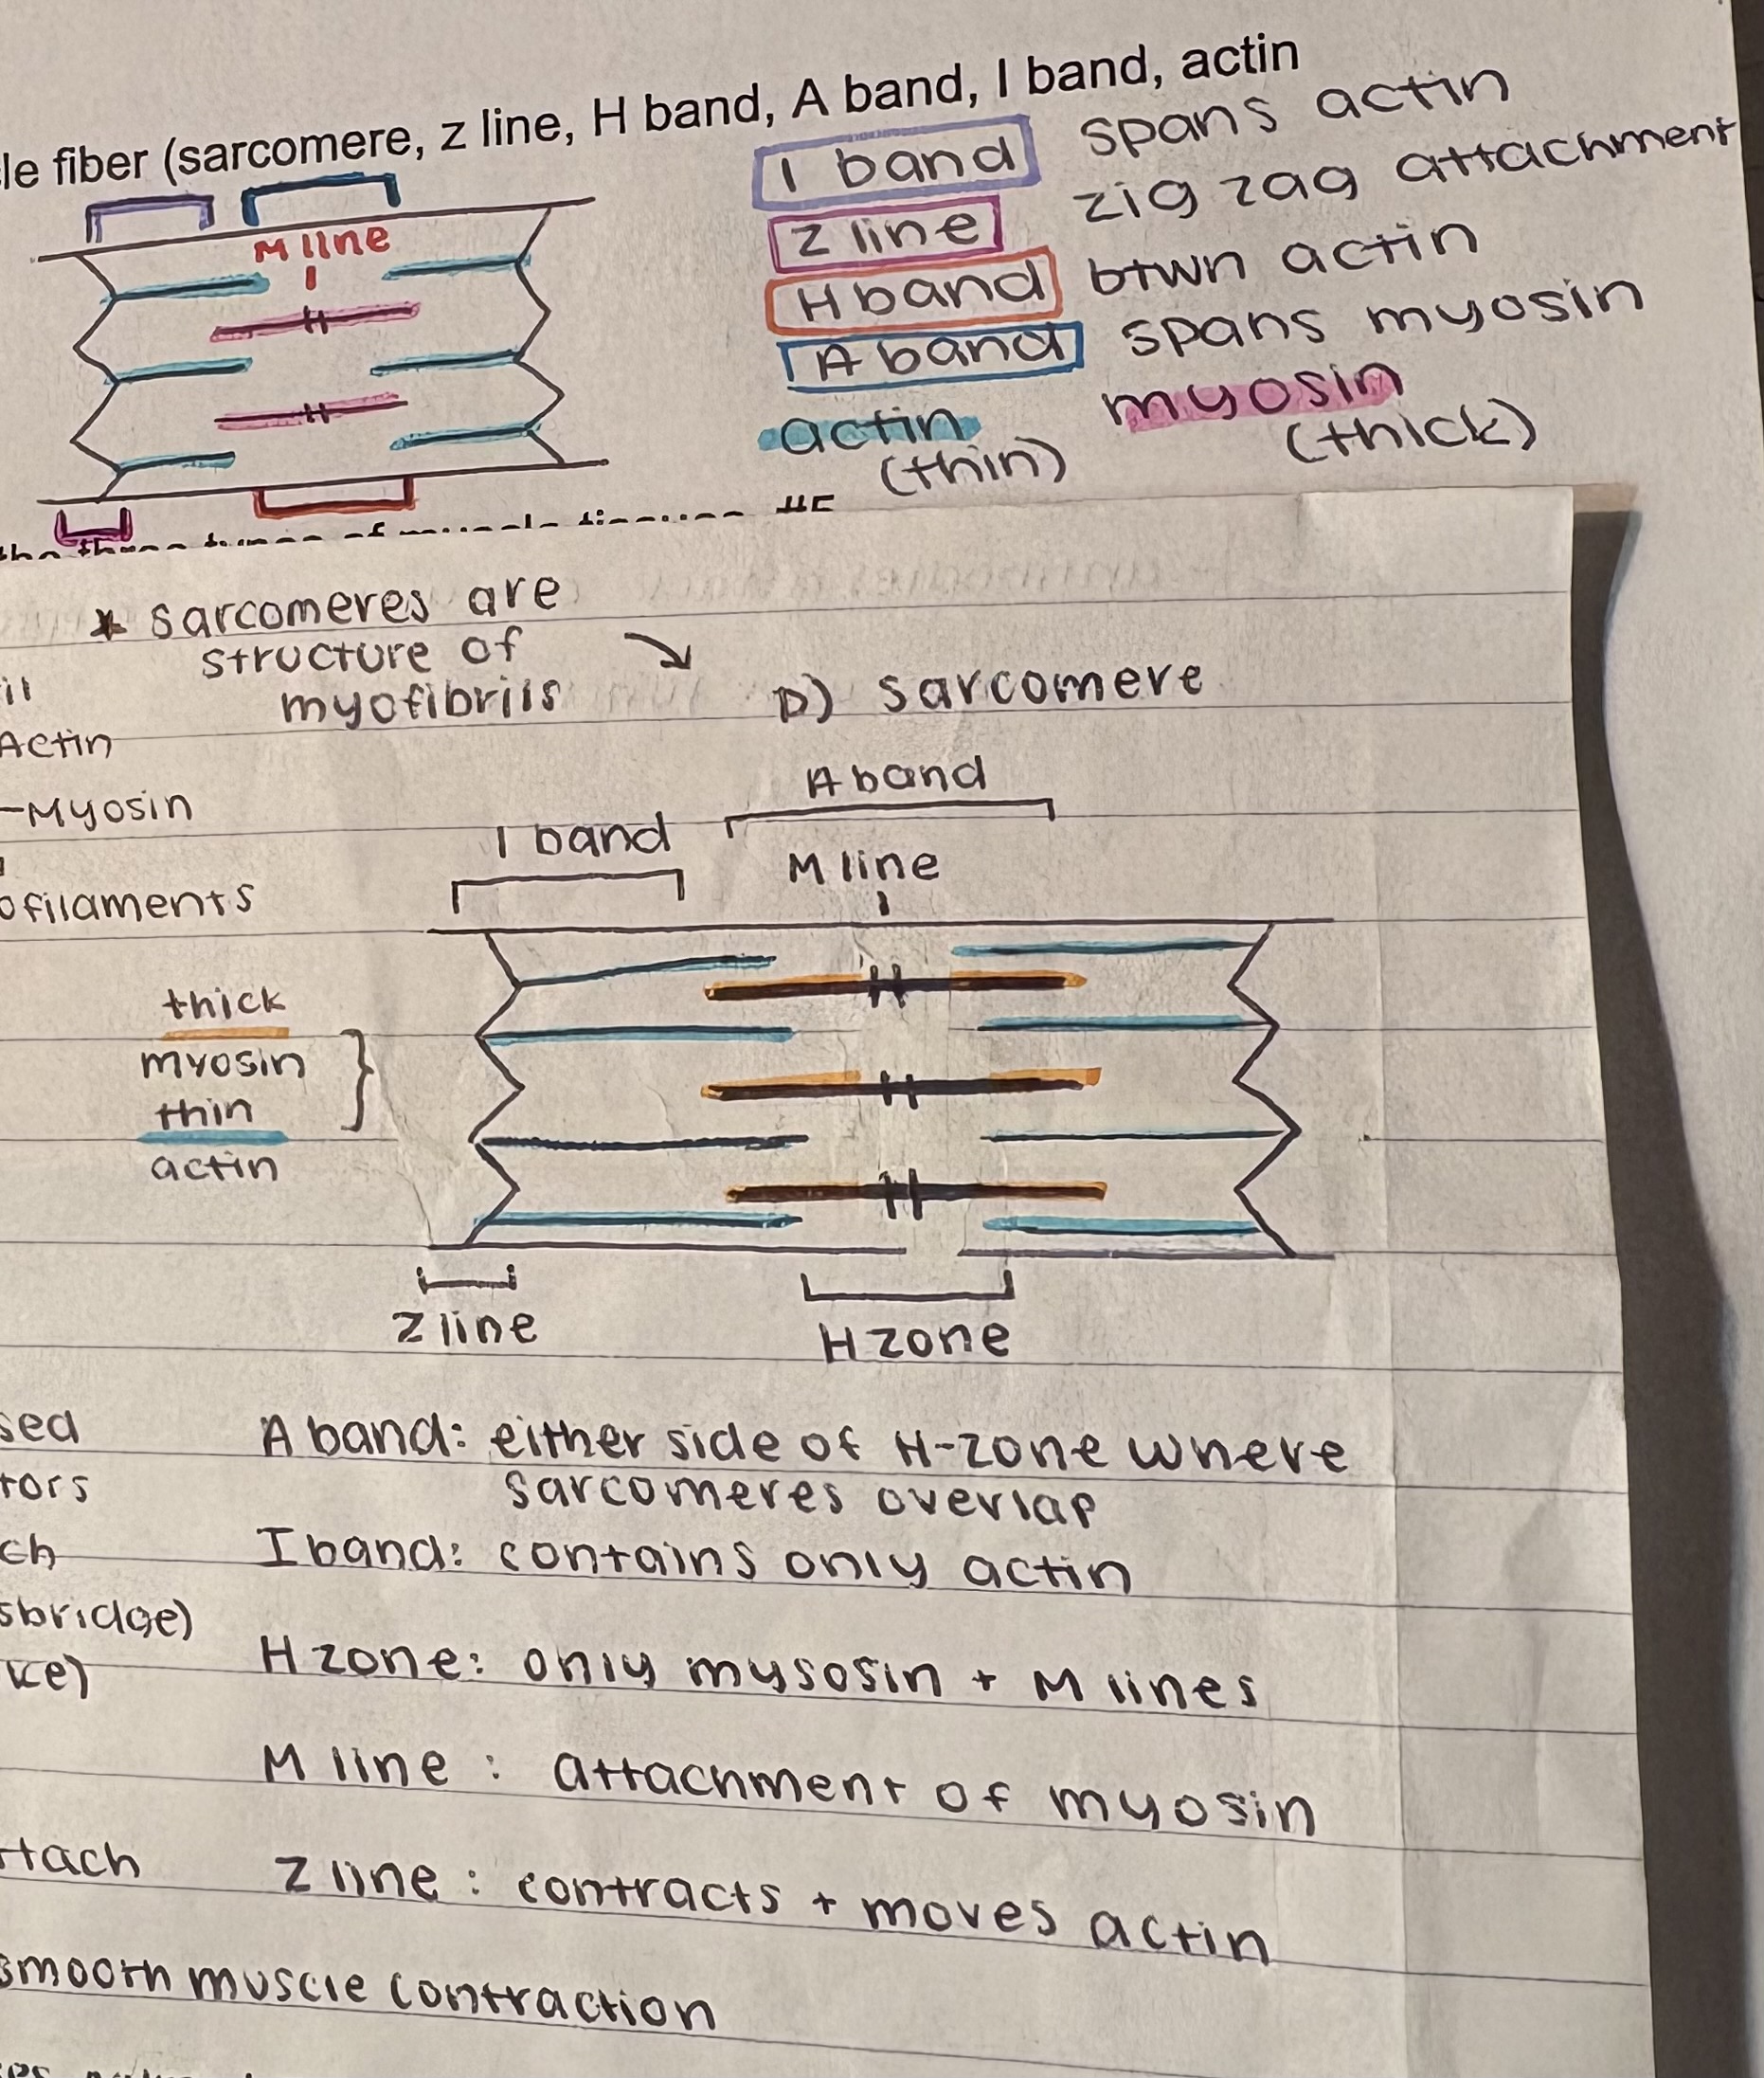 le fiber (sarcomere, z line, H band, A band, I band, actin
I band spans actin
z line zig zag attachment
H band btwn actin
A band spans myosin
actin myosin
(thin) (thick)
M line
the three types of muscle tissues. #5
* sarcomeres are
structure of
myofibrils
il
Actin
-Myosin
ofilaments
D) sarcomere
A band
I band
M line
thick
myosin
thin
actin
Z line
H zone
sed
A band: either side of H-zone where
tors
sarcomeres overlap
ch
I band: contains only actin
sbridge)
ke)
H zone: only mysosin + M lines
M line : attachment of myosin
ttach
Z line : contracts + moves actin
smooth muscle contraction